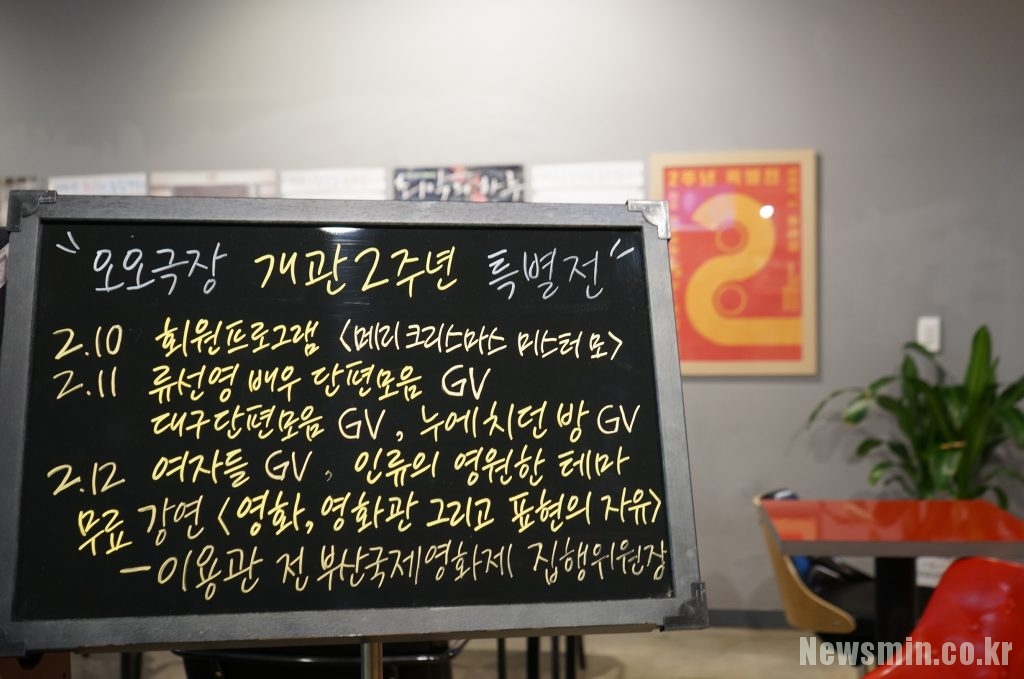 "오오극장 개관2주년 특별전"
2.10 회원프로그램 <메리크리스마스 미스터 모>
2.11 류선영 배우 단편모음 GV
대구단편모음 GV, 누에치던 방 GV
2.12 여자들 GV, 인류의 영원한 테마
무료 강연 <영화, 영화관 그리고 표현의 자유>
-이용관 전 부산국제영화제 집행위원장
2주년 특별전
Newsmin.co.kr